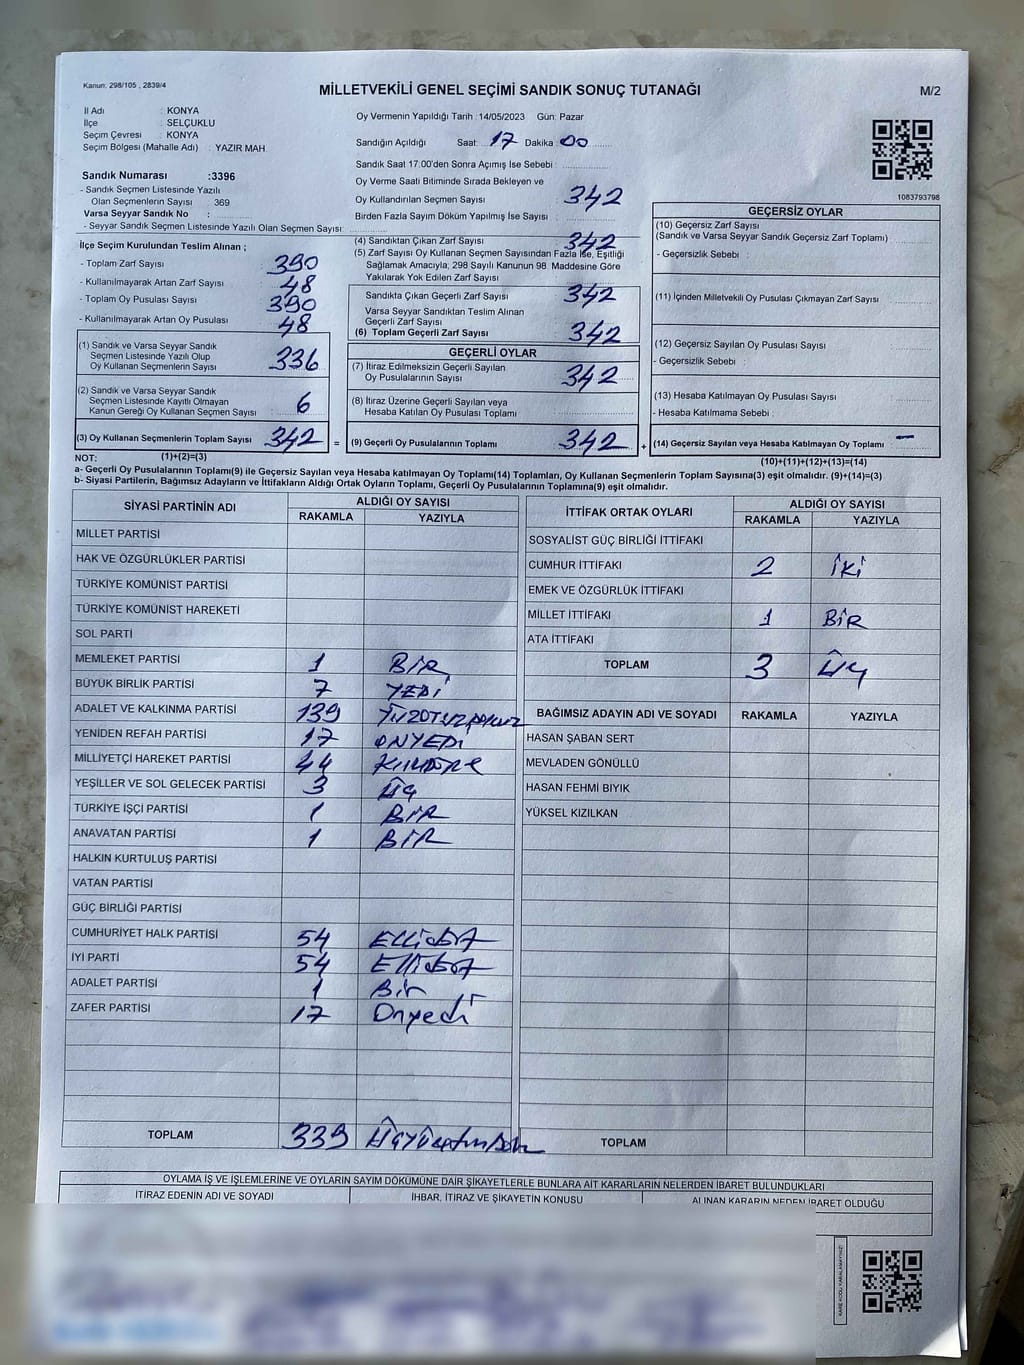 Kanun: 298/105 , 2839/4
MİLLETVEKİLİ GENEL SEÇİMİ SANDIK SONUÇ TUTANAĞI
M/2
İl Adı : KONYA
İlçe : SELÇUKLU
Seçim Çevresi : KONYA
Seçim Bölgesi (Mahalle Adı) : YAZIR MAH.
Sandık Numarası :3396
- Sandık Seçmen Listesinde Yazılı
Olan Seçmenlerin Sayısı : 369
Varsa Seyyar Sandık No :
- Seyyar Sandık Seçmen Listesinde Yazılı Olan Seçmen Sayısı:
Oy Vermenin Yapıldığı Tarih :14/05/2023 Gün: Pazar
Sandığın Açıldığı Saat: 17 Dakika: 00
Sandık Saat 17:00'den Sonra Açımış İse Sebebi :
Oy Verme Saati Bitiminde Sırada Bekleyen ve
Oy Kullandırılan Seçmen Sayısı : 342
Birden Fazla Sayım Döküm Yapılmış İse Sayısı :
1083793798
İlçe Seçim Kurulundan Teslim Alınan ;
- Toplam Zarf Sayısı : 390
- Kullanılmayarak Artan Zarf Sayısı : 48
- Toplam Oy Pusulası Sayısı : 390
- Kullanılmayarak Artan Oy Pusulası : 48
(1) Sandık ve Varsa Seyyar Sandık
Seçmen Listesinde Yazılı Olup
Oy Kullanan Seçmenlerin Sayısı : 336
(2) Sandık ve Varsa Seyyar Sandık
Seçmen Listesinde Kayıtlı Olmayan
Kanun Gereği Oy Kullanan Seçmen Sayısı : 6
(3) Oy Kullanan Seçmenlerin Toplam Sayısı 342 =
(4) Sandıktan Çıkan Zarf Sayısı : 342
(5) Zarf Sayısı Oy Kullanan Seçmen Sayısından Fazla İse, Eşitliği
Sağlamak Amacıyla, 298 Sayılı Kanunun 98. Maddesine Göre
Yakılarak Yok Edilen Zarf Sayısı :
Sandıkta Çıkan Geçerli Zarf Sayısı : 342
Varsa Seyyar Sandıktan Teslim Alınan
Geçerli Zarf Sayısı :
(6) Toplam Geçerli Zarf Sayısı : 342
GEÇERLİ OYLAR
(7) İtiraz Edilmeksizin Geçerli Sayılan
Oy Pusulalarının Sayısı : 342
(8) İtiraz Üzerine Geçerli Sayılan veya
Hesaba Katılan Oy Pusulası Toplamı :
(9) Geçerli Oy Pusulalarının Toplamı 342 +
GEÇERSİZ OYLAR
(10) Geçersiz Zarf Sayısı :
(Sandık ve Varsa Seyyar Sandık Geçersiz Zarf Toplamı)
- Geçersizlik Sebebi :
(11) İçinden Milletvekili Oy Pusulası Çıkmayan Zarf Sayısı :
(12) Geçersiz Sayılan Oy Pusulası Sayısı :
- Geçersizlik Sebebi :
(13) Hesaba Katılmayan Oy Pusulası Sayısı :
- Hesaba Katılmama Sebebi :
(14) Geçersiz Sayılan veya Hesaba Katılmayan Oy Toplamı : –
NOT: (1)+(2)=(3)
(10)+(11)+(12)+(13)=(14)
a- Geçerli Oy Pusulalarının Toplamı(9) ile Geçersiz Sayılan veya Hesaba katılmayan Oy Toplamı(14) Toplamları, Oy Kullanan Seçmenlerin Toplam Sayısına(3) eşit olmalıdır. (9)+(14)=(3)
b- Siyasi Partilerin, Bağımsız Adayların ve İttifakların Aldığı Ortak Oyların Toplamı, Geçerli Oy Pusulalarının Toplamına(9) eşit olmalıdır.
SİYASİ PARTİNİN ADI ALDIĞI OY SAYISI
RAKAMLA YAZIYLA
MİLLET PARTİSİ
HAK VE ÖZGÜRLÜKLER PARTİSİ
TÜRKİYE KOMÜNİST PARTİSİ
TÜRKİYE KOMÜNİST HAREKETİ
SOL PARTİ
MEMLEKET PARTİSİ 1 BİR
BÜYÜK BİRLİK PARTİSİ 7 YEDİ
ADALET VE KALKINMA PARTİSİ 139
YENİDEN REFAH PARTİSİ 17 ONYEDİ
MİLLİYETÇİ HAREKET PARTİSİ 44
YEŞİLLER VE SOL GELECEK PARTİSİ 3 ÜÇ
TÜRKİYE İŞÇİ PARTİSİ 1 BİR
ANAVATAN PARTİSİ 1 BİR
HALKIN KURTULUŞ PARTİSİ
VATAN PARTİSİ
GÜÇ BİRLİĞİ PARTİSİ
CUMHURİYET HALK PARTİSİ 54 Ellidört
İYİ PARTİ 54 Ellidört
ADALET PARTİSİ 1 Bir
ZAFER PARTİSİ 17 Onyedi
TOPLAM 339
İTTİFAK ORTAK OYLARI ALDIĞI OY SAYISI
RAKAMLA YAZIYLA
SOSYALİST GÜÇ BİRLİĞİ İTTİFAKI
CUMHUR İTTİFAKI 2 İKİ
EMEK VE ÖZGÜRLÜK İTTİFAKI
MİLLET İTTİFAKI 1 BİR
ATA İTTİFAKI
TOPLAM 3 ÜÇ
BAĞIMSIZ ADAYIN ADI VE SOYADI RAKAMLA YAZIYLA
HASAN ŞABAN SERT
MEVLADEN GÖNÜLLÜ
HASAN FEHMİ BIYIK
YÜKSEL KIZILKAN
TOPLAM
OYLAMA İŞ VE İŞLEMLERİNE VE OYLARIN SAYIM DÖKÜMÜNE DAİR ŞİKAYETLERLE BUNLARA AİT KARARLARIN NELERDEN İBARET BULUNDUKLARI
İTİRAZ EDENİN ADI VE SOYADI İHBAR, İTİRAZ VE ŞİKAYETİN KONUSU ALINAN KARARIN NEDEN İBARET OLDUĞU